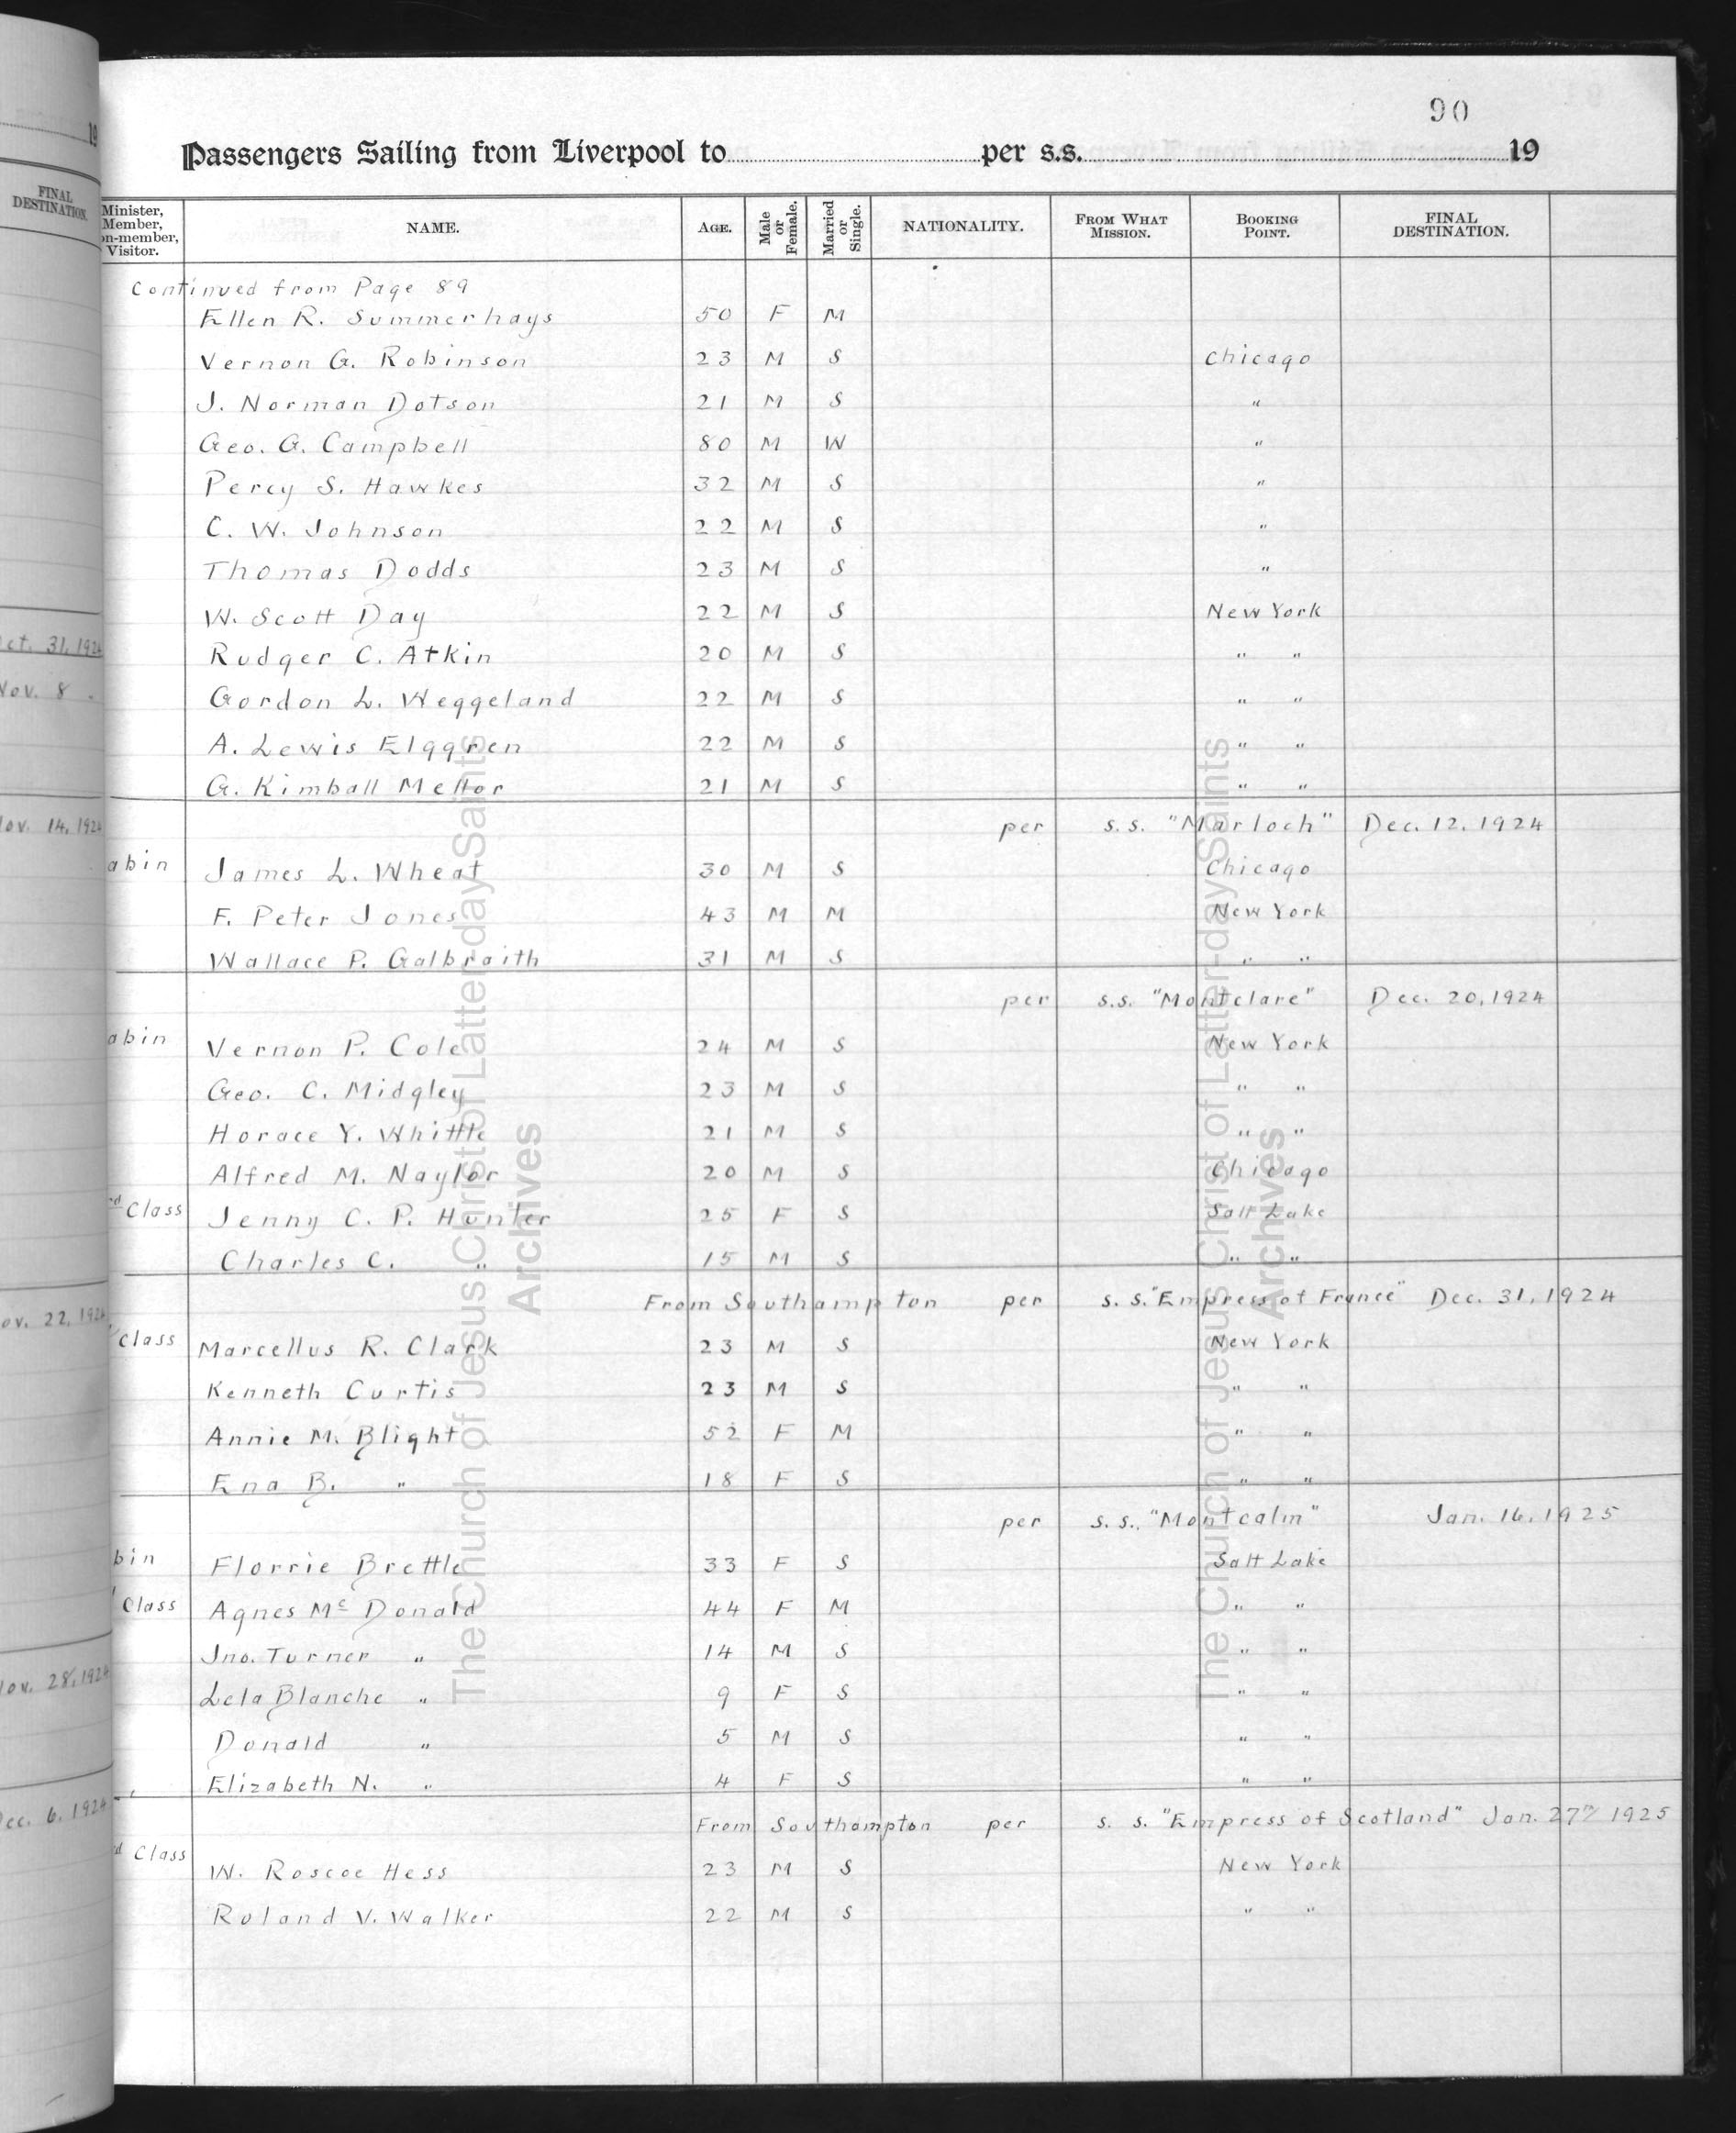 90
Passengers Sailing from Liverpool to per s.s. 19
Minister, Member, on-member, Visitor. NAME. AGE. Male or Female. Married or Single. NATIONALITY. FROM WHAT MISSION. BOOKING POINT. FINAL DESTINATION.
Continued from Page 89
Ellen R. Summerhays 50 F M
Vernon G. Robinson 23 M S Chicago
J. Norman Dotson 21 M S "
Geo. G. Campbell 80 M W "
Percy S. Hawkes 32 M S "
C. W. Johnson 22 M S "
Thomas Dodds 23 M S "
W. Scott Day 22 M S New York
Rudger C. Atkin 20 M S " "
Gordon L. Weggeland 22 M S " "
A. Lewis Elggren 22 M S " "
G. Kimball Mellor 21 M S " "
per s.s. "Marloch" Dec. 12. 1924
abin James L. Wheat 30 M S Chicago
F. Peter Jones 43 M M New York
Wallace P. Galbraith 31 M S " "
per s.s. "Montclare" Dec. 20, 1924
abin Vernon P. Cole 24 M S New York
Geo. C. Midgley 23 M S " "
Horace Y. Whittle 21 M S " "
Alfred M. Naylor 20 M S Chicago
rd Class Jenny C. P. Hunter 25 F S Salt Lake
Charles C. " 15 M S " "
From Southampton per s.s. "Empress of France" Dec. 31, 1924
Class Marcellus R. Clark 23 M S New York
Kenneth Curtis 23 M S " "
Annie M. Blight 52 F M " "
Ena B. " 18 F S " "
per s.s. "Montcalm" Jan. 16, 1925
bin Florrie Brettle 33 F S Salt Lake
Class Agnes Mc Donald 44 F M " "
Jno. Turner " 14 M S " "
Lela Blanche " 9 F S " "
Donald " 5 M S " "
Elizabeth N. " 4 F S " "
From Southampton per s. s. "Empress of Scotland" Jan. 27th 1925
rd Class W. Roscoe Hess 23 M S New York
Roland V. Walker 22 M S " "
19
FINAL DESTINATION.
ct. 31, 1924
Nov. 8
ov. 14, 1924
ov. 22, 1924
ov. 28, 1924
ec. 6, 1924
The Church of Jesus Christ of Latter-day Saints
Archives
The Church of Jesus Christ of Latter-day Saints
Archives